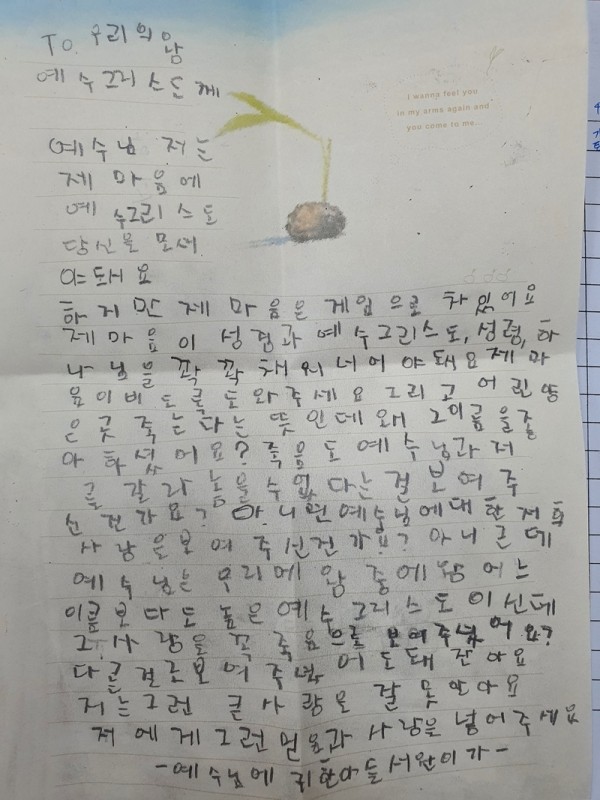 To. 우리의 왕
예수그리스도께
I wanna feel you
in my arms again and
you come to me...
예수님 저는
제 마음에
예수그리스도
당신을 모셔
야돼요
하지만 제 마음은 게임으로 차있어요
제 마음이 성경과 예수그리스도, 성령, 하
나님을 꽉 꽉 채워너어야돼요 제 마
음이비도록 도와주세요 그리고 어린 양
은 곳 죽는다는 뜻인데 왜 그이름을
아 하셨어요? 죽음도 예수님과 저
를 갈라놓을수없다는걸 보여주
신 건가요? 아니면 예수님에대한 저희
사랑은보여주신건가요? 아니 근데
예수님은 우리에 왕 중에왕 어느
이름보다도 높은 예수그리스도이신데
그 사랑을 꼭 죽음으로 보여주님어요?
다른걸로보여주님어도돼잔아요
저는그런 큰 사랑은 잘 못 안아요
저에게 그런 믿음과 사랑을 넣어주세요
-예수님에 귀한아들 서완이가-